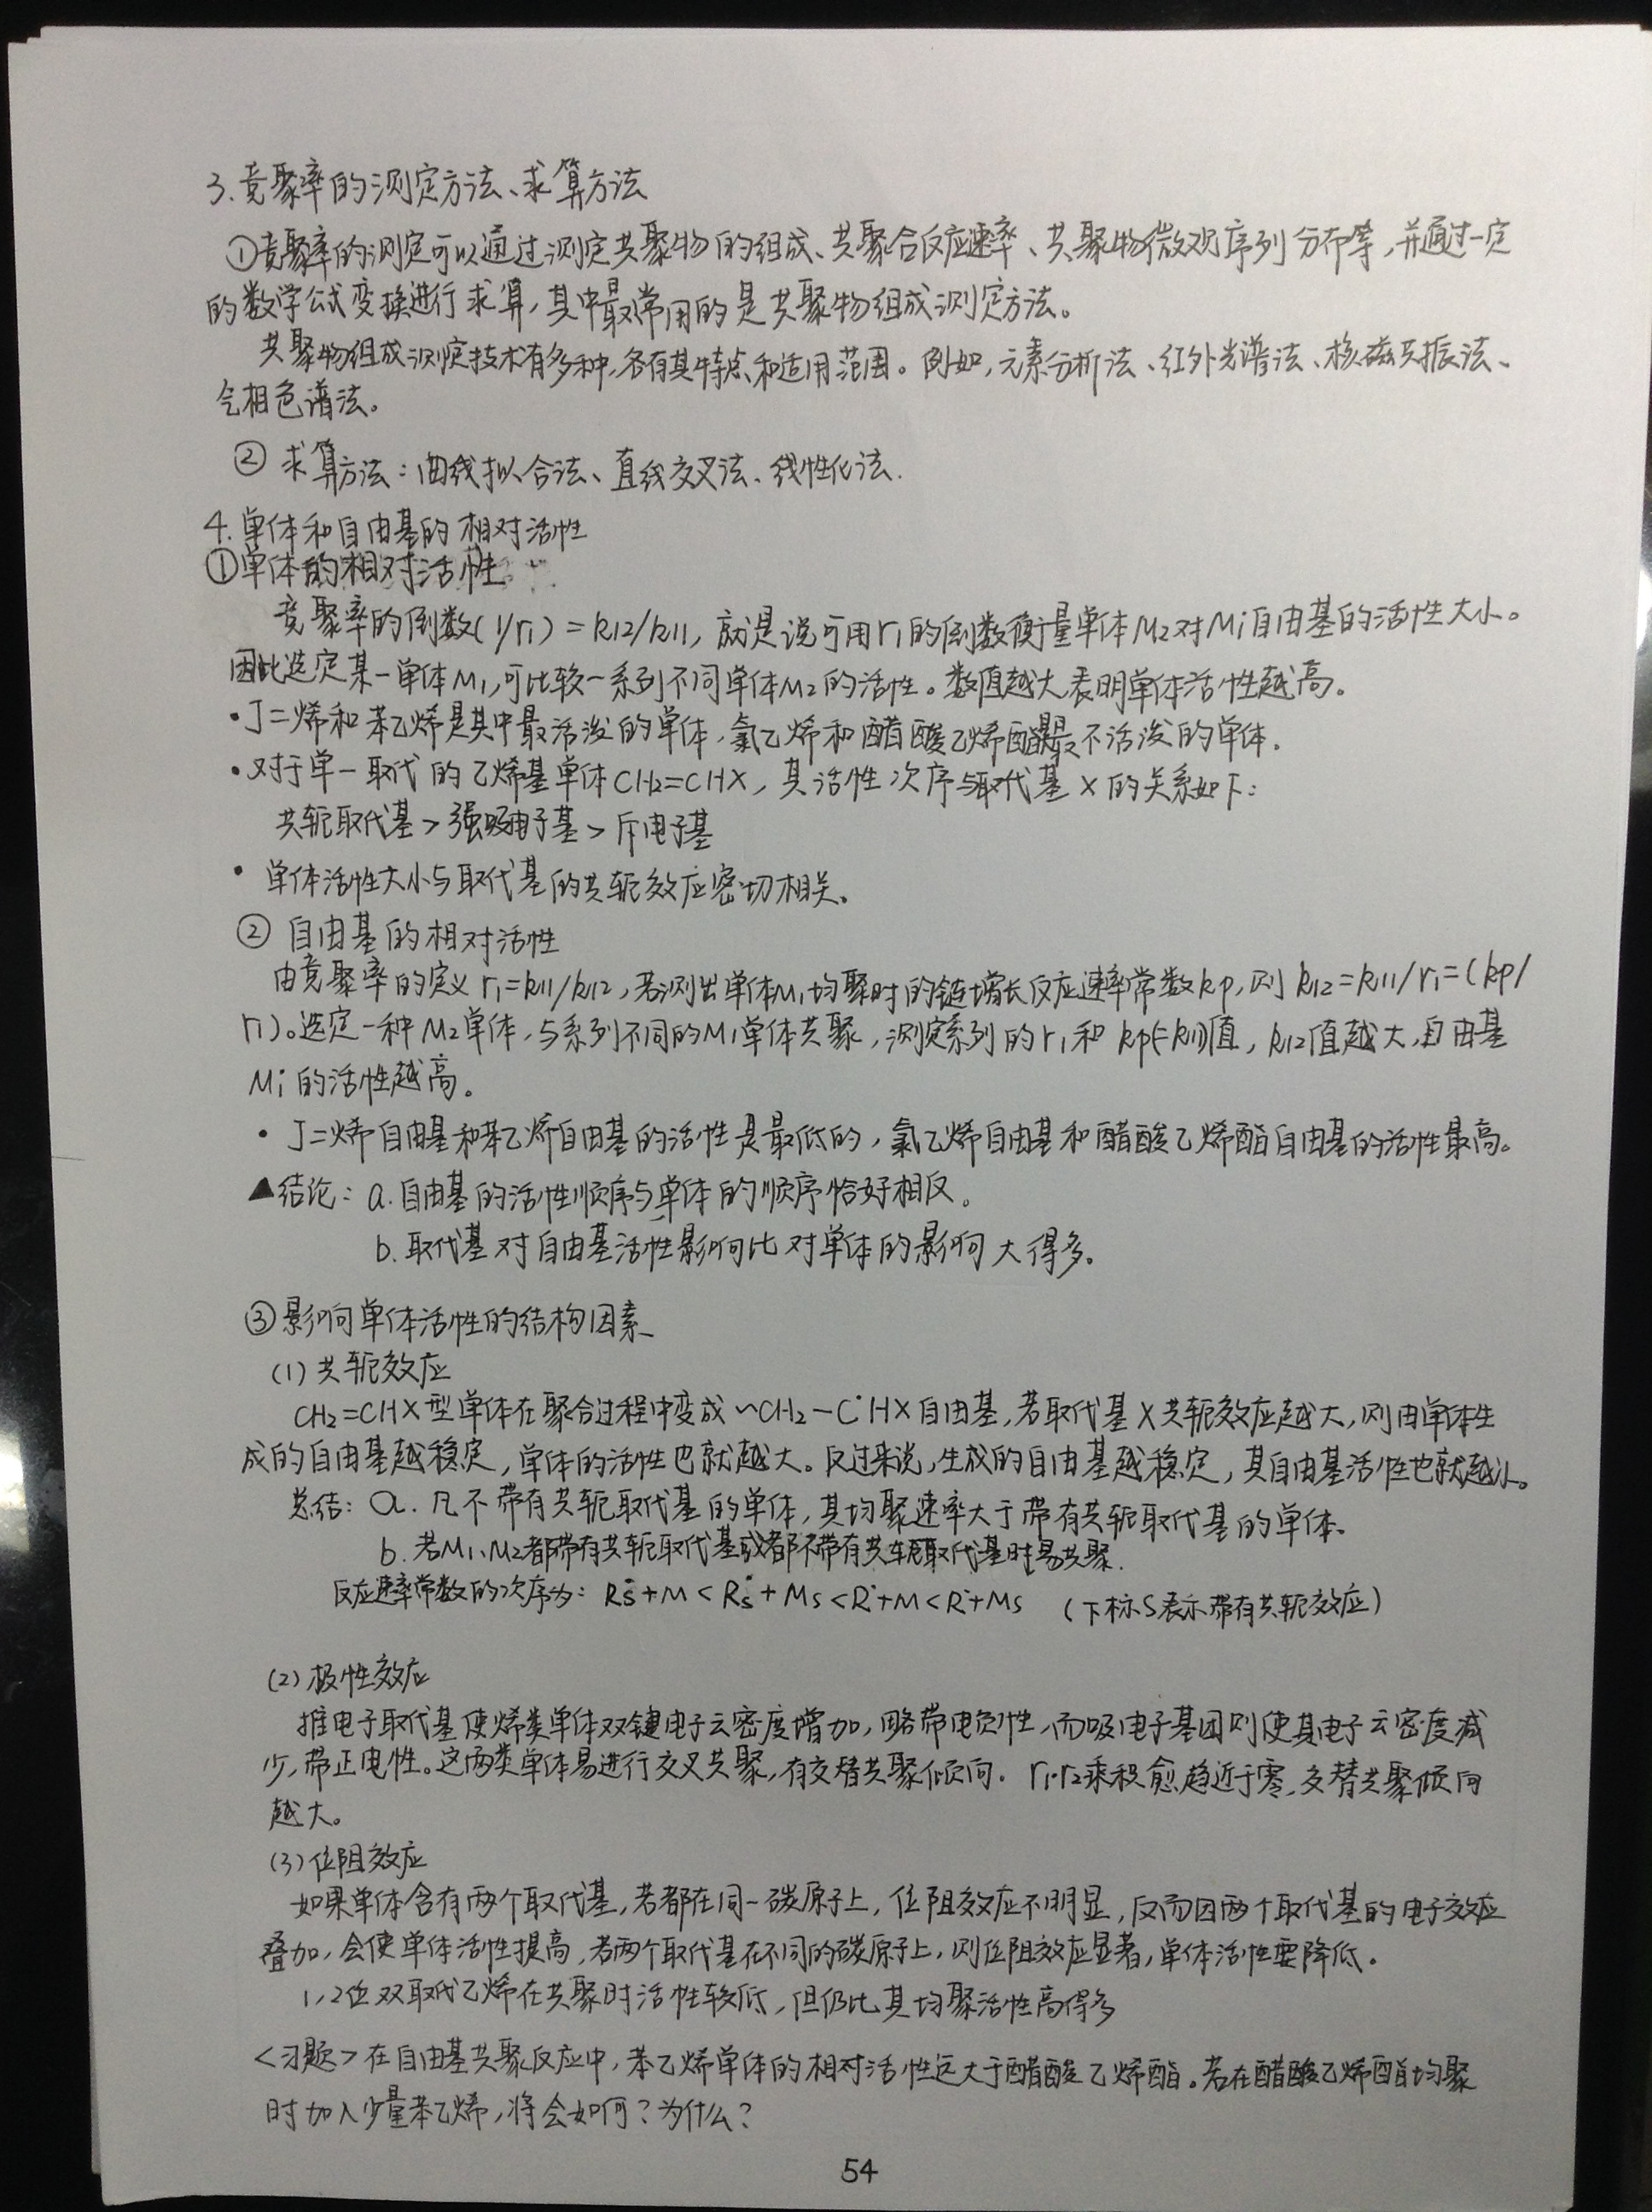 3.竞聚率的测定方法、求算方法
①竞聚率的测定可以通过测定共聚物的组成、共聚合反应速率、共聚物微观序列分布等,并通过一定
的数学公式变换进行求算,其中最常用的是共聚物组成测定方法。
共聚物组成测定技术有多种,各有其特点和适用范围。例如,元素分析法、红外光谱法、核磁共振法、
气相色谱法。
② 求算方法:曲线拟合法、直线交叉法、线性化法.
4.单体和自由基的相对活性
①单体的相对活性
竞聚率的倒数(1/r₁)=k₁₂/k₁₁,就是说可用r₁的倒数衡量单体M₂对M₁·自由基的活性大小。
因此选定某一单体M₁,可比较一系列不同单体M₂的活性。数值越大表明单体活性越高。
·丁二烯和苯乙烯是其中最活泼的单体,氯乙烯和醋酸乙烯酯是最不活泼的单体.
·对于单一取代的乙烯基单体CH₂=CHX,其活性次序与取代基X的关系如下:
共轭取代基>强吸电子基>斥电子基
· 单体活性大小与取代基的共轭效应密切相关。
② 自由基的相对活性
由竞聚率的定义r₁=k₁₁/k₁₂,若测出单体M₁均聚时的链增长反应速率常数kp,则k₁₂=k₁₁/r₁=(kp/
r₁)。选定一种M₂单体,与系列不同的M₁单体共聚,测定系列的r₁和kp(=k₁₁)值,k₁₂值越大,自由基
M₁·的活性越高。
· 丁二烯自由基和苯乙烯自由基的活性是最低的,氯乙烯自由基和醋酸乙烯酯自由基的活性最高。
▲结论:a.自由基的活性顺序与单体的顺序恰好相反。
b.取代基对自由基活性影响比对单体的影响大得多。
③影响单体活性的结构因素
(1)共轭效应
CH₂=CHX型单体在聚合过程中变成~CH₂-C·HX自由基,若取代基X共轭效应越大,则由单体生
成的自由基越稳定,单体的活性也就越大。反过来说,生成的自由基越稳定,其自由基活性也就越小。
总结:a.凡不带有共轭取代基的单体,其均聚速率大于带有共轭取代基的单体.
b.若M₁、M₂都带有共轭取代基或都不带有共轭取代基时易共聚.
反应速率常数的次序为:Rs·+M<Rs·+Ms<R·+M<R·+Ms (下标S表示带有共轭效应)
(2)极性效应
推电子取代基使烯类单体双键电子云密度增加,略带电负性,而吸电子基团则使其电子云密度减
少,带正电性。这两类单体易进行交叉共聚,有交替共聚倾向.r₁·r₂乘积愈趋近于零,交替共聚倾向
越大。
(3)位阻效应
如果单体含有两个取代基,若都在同一碳原子上,位阻效应不明显,反而因两个取代基的电子效应
叠加,会使单体活性提高,若两个取代基在不同的碳原子上,则位阻效应显著,单体活性要降低.
1,2位双取代乙烯在共聚时活性较低,但仍比其均聚活性高得多
<习题>在自由基共聚反应中,苯乙烯单体的相对活性远大于醋酸乙烯酯。若在醋酸乙烯酯均聚
时加入少量苯乙烯,将会如何?为什么?
54